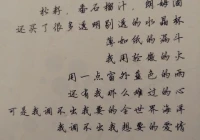 柠檬、番石榴汁、朗姆酒
还买了很多透明剔透的水晶杯
薄如纸的漏斗
我用松散的火
用一点窗外蓝色的雨
还有我那么难过的心
可是我调不出我要的全世界海洋
我调不出我想要的爱情